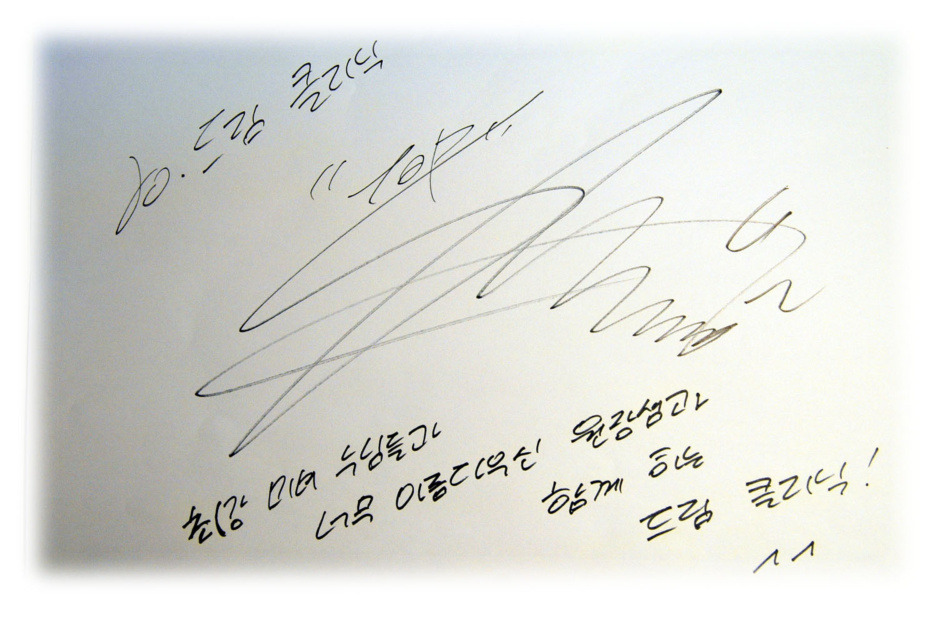 to. 드림 클리닉
최강 미녀 누님들과
너무 아름다우신 원장샘과
함께 하는
드림 클리닉!
^^